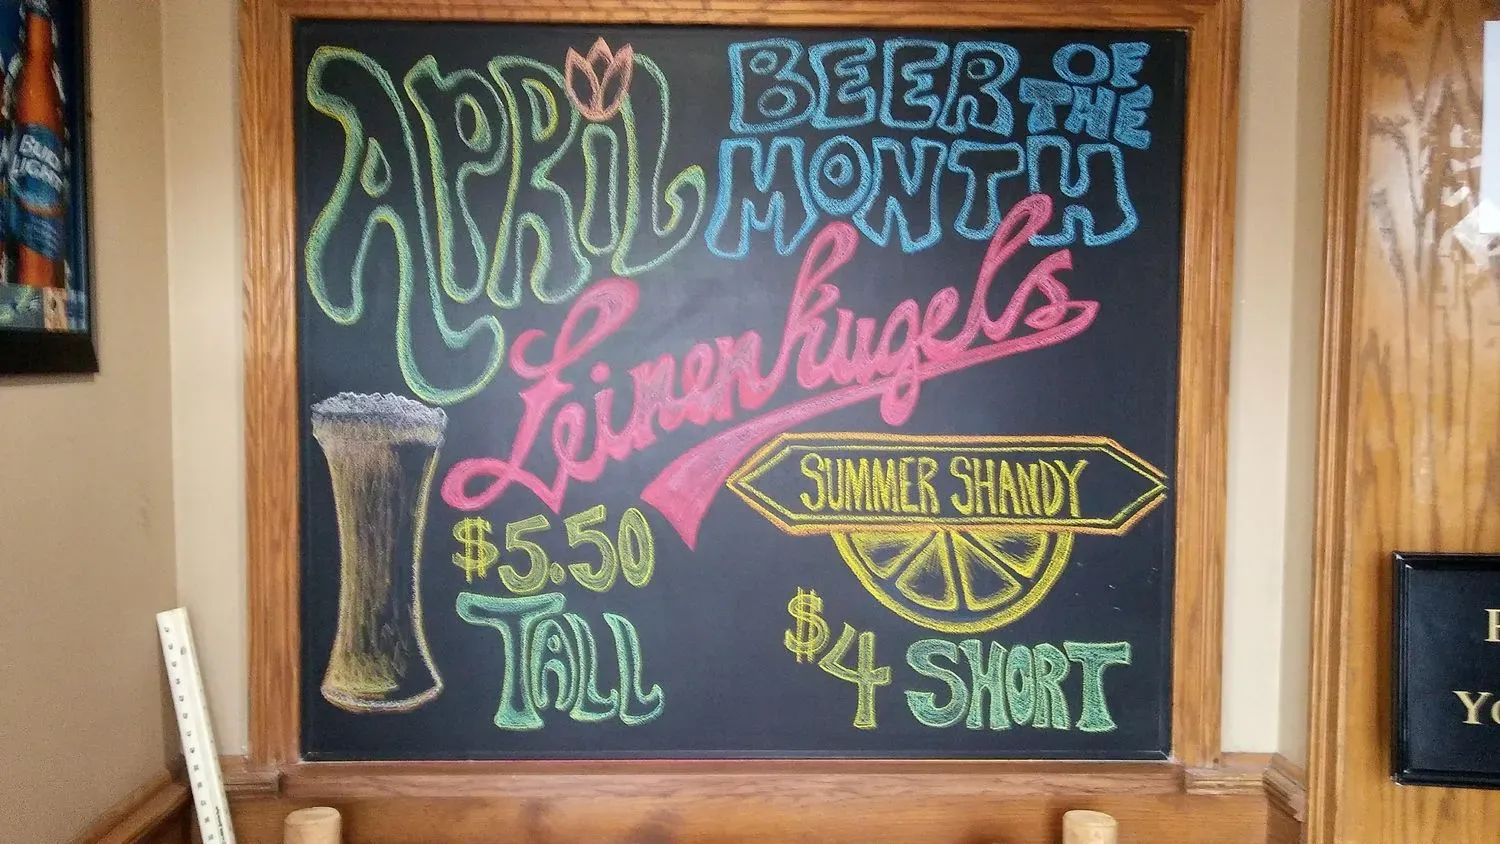 APRiL
BEER OF THE
MONTH
Leinenkugel's
SUMMER SHANDY
$5.50
TALL
$4 SHORT
BUD
LIGHT